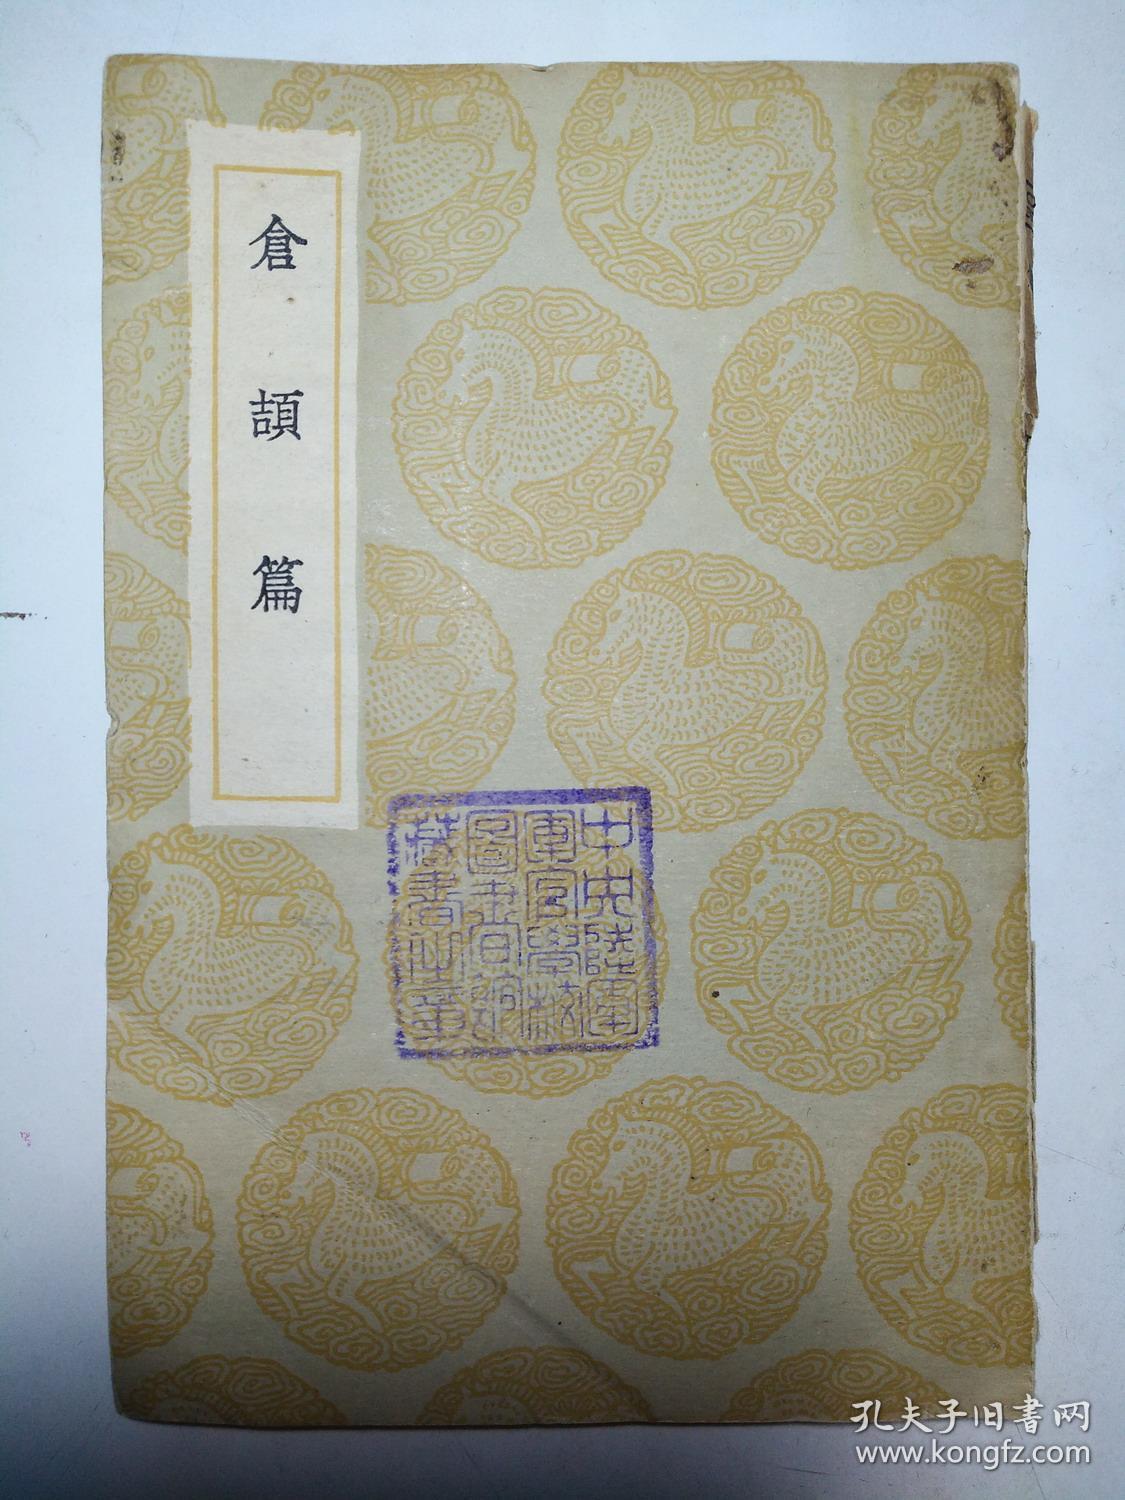 倉頡篇
中央陸軍
軍官學校
圖書館
藏書之章
孔夫子旧書网
www.kongfz.com